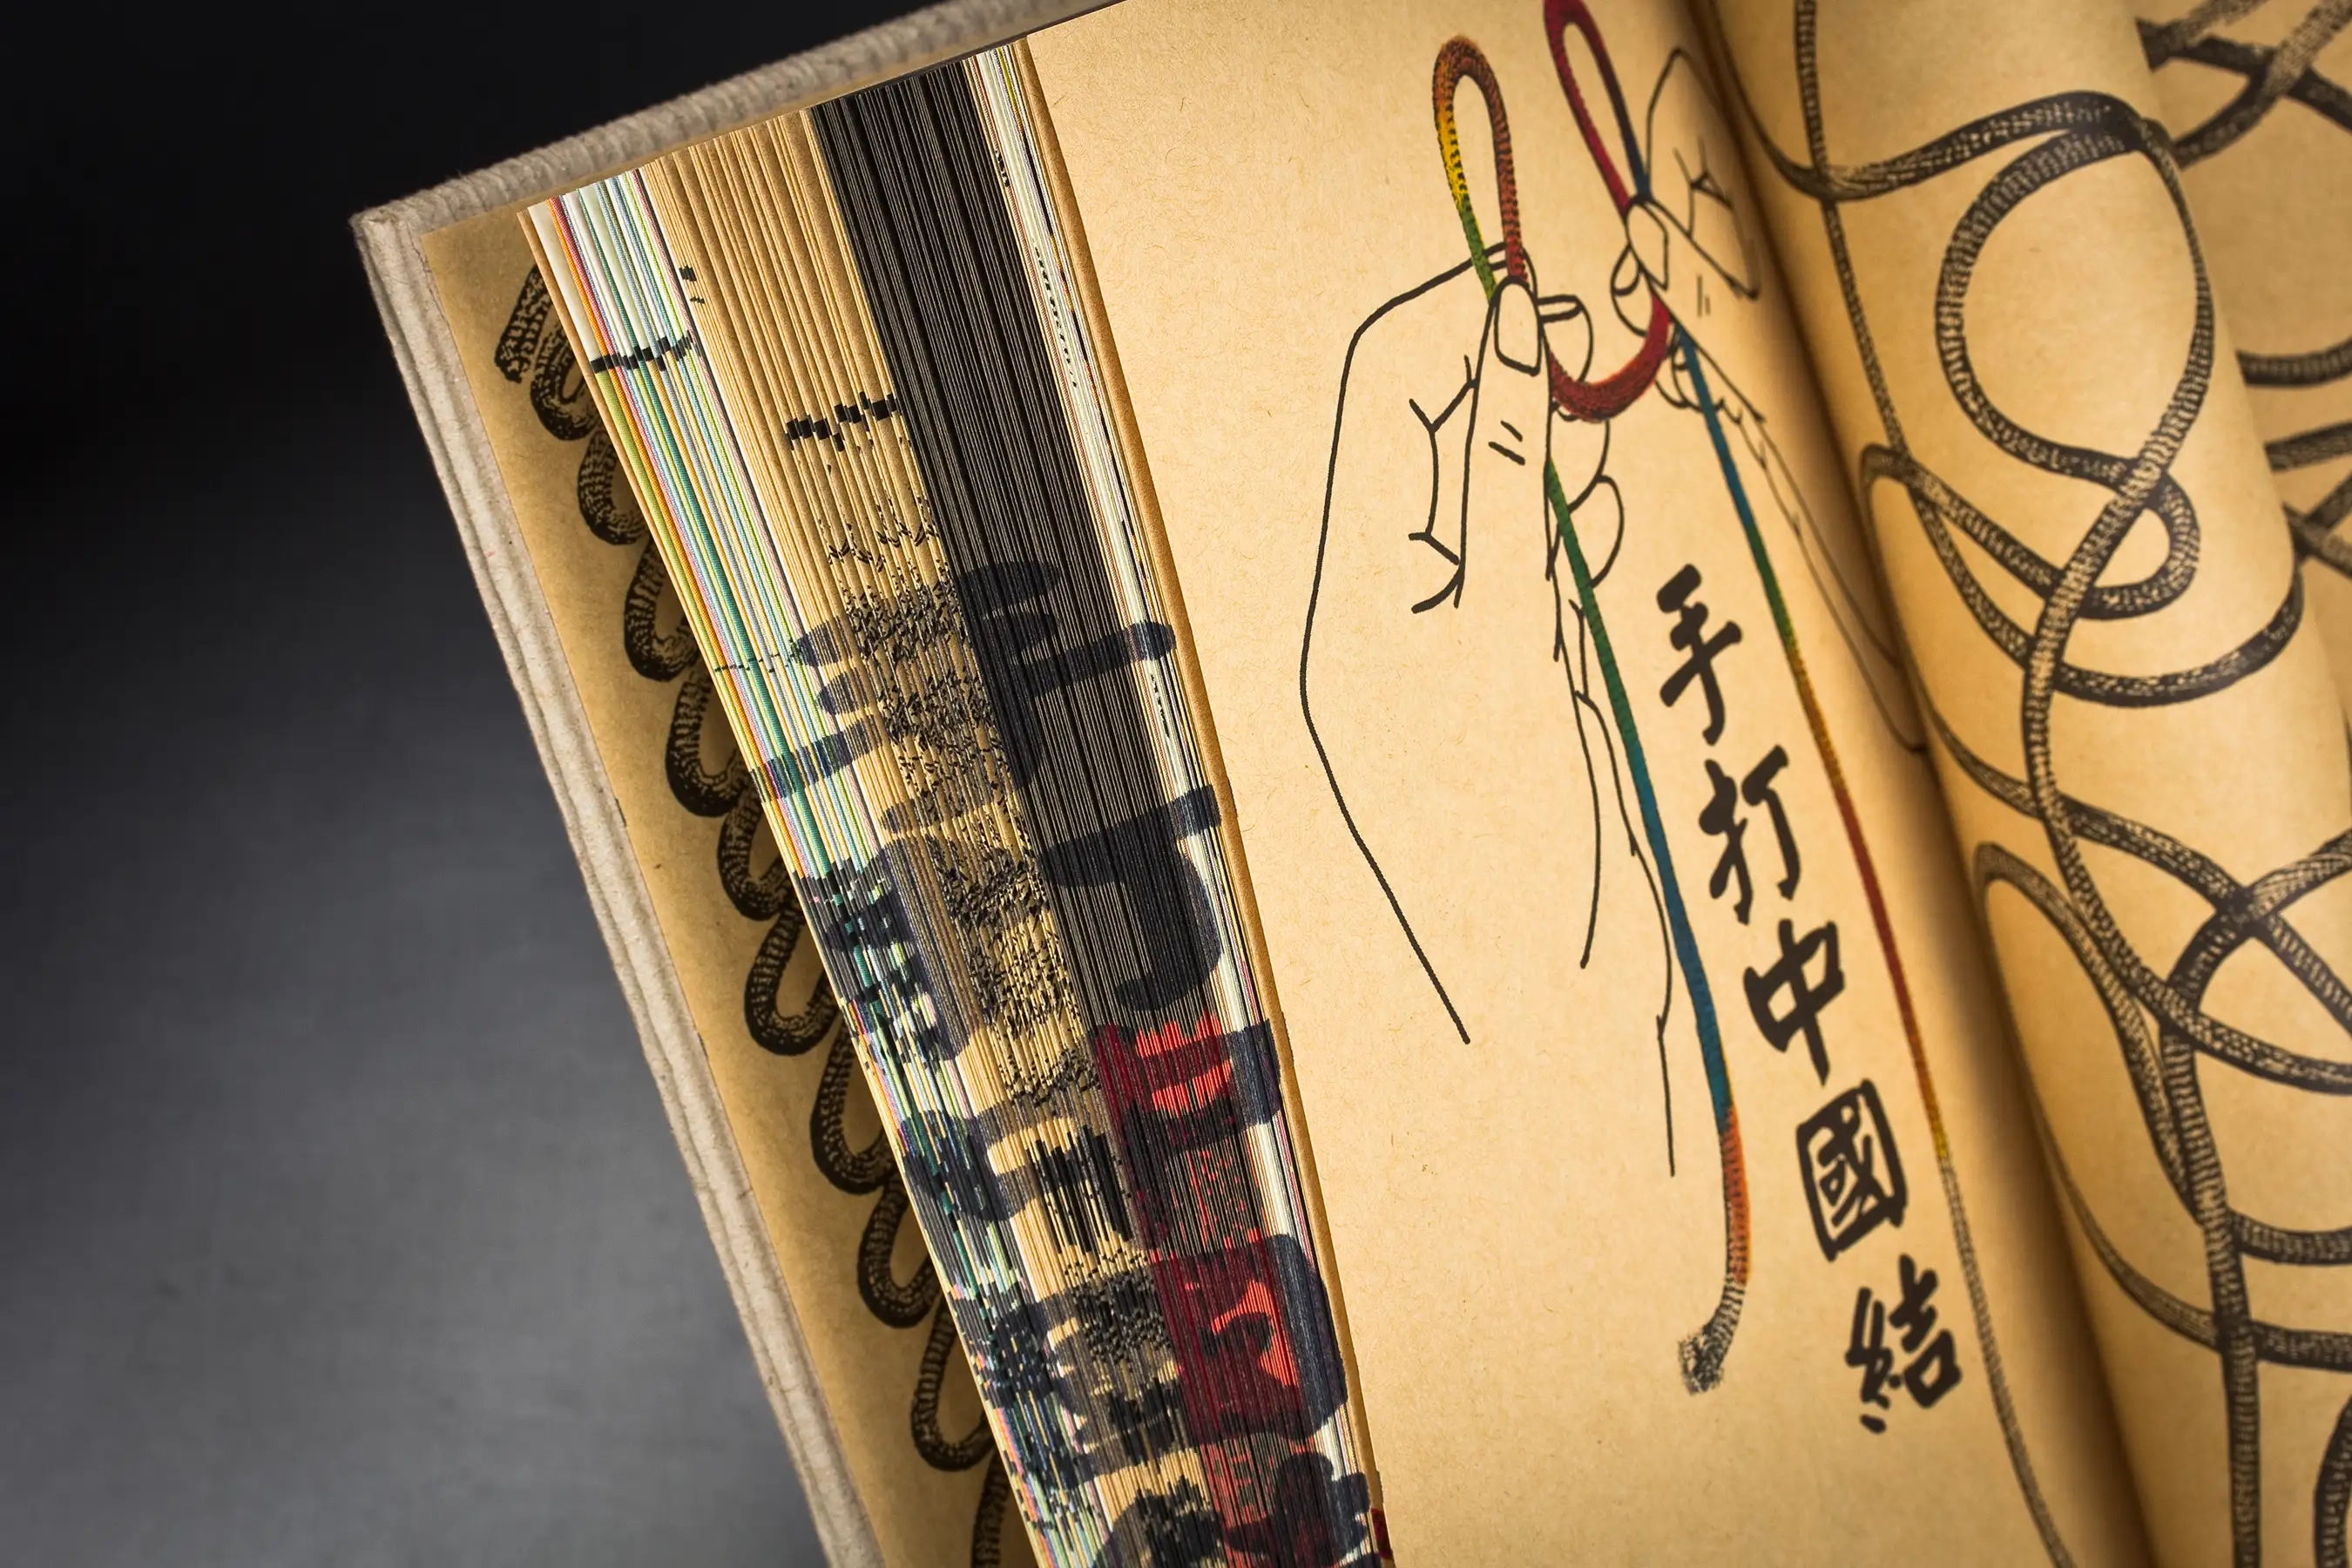 手打中國結